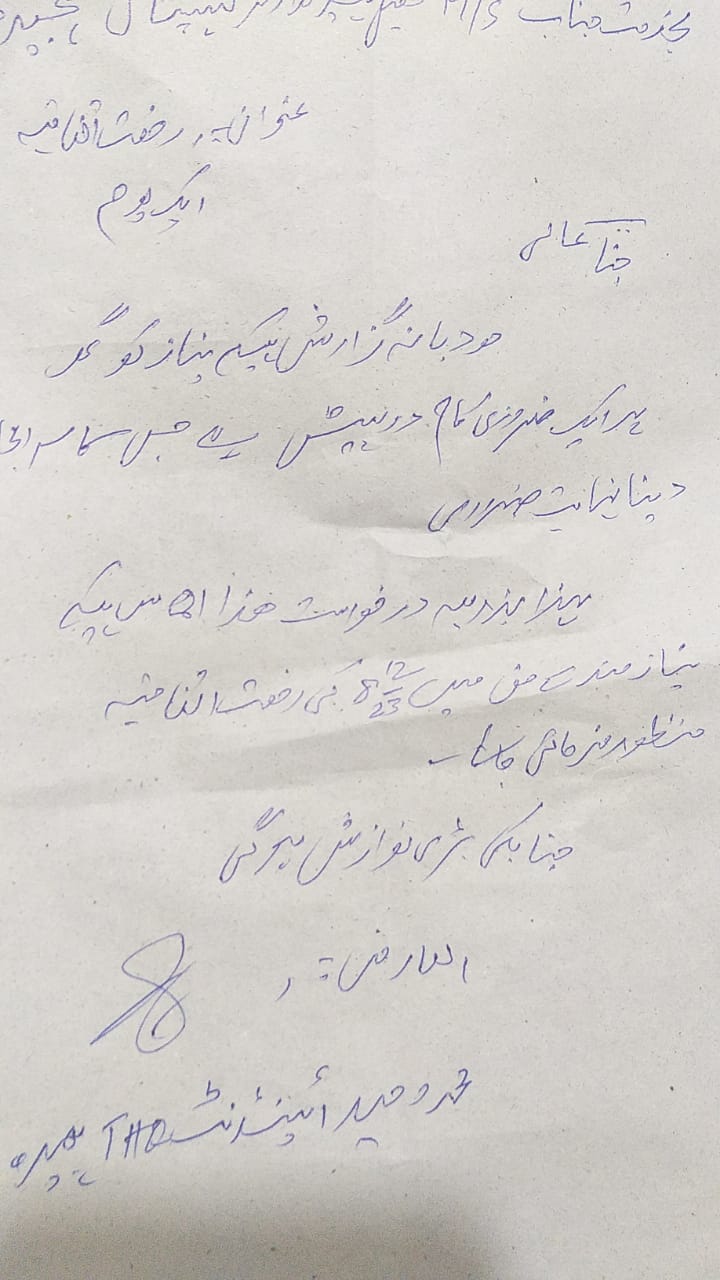 بخدمت جناب M/S تحصیل ہیڈ کوارٹر ہسپتال ہجیرہ
عنوان:۔ رخصت اتفاقیہ
ایک یوم
جناب عالی
مودبانہ گزارش ہیکہ نیاز کو گھر
پر ایک ضروری کام درپیش ہے جس کا سر
دینا نہایت ضروری
لہذا بذریعہ درخواست ھذا التماس ہیکہ
نیاز مند کے حق میں 8 12/23 کی رخصت اتفاقیہ
منظور فرمائی جائے۔
جناب کی بڑی نوازش ہوگی
العارض:۔
محمد وحید اٹینڈنٹ THQ ہجیرہ